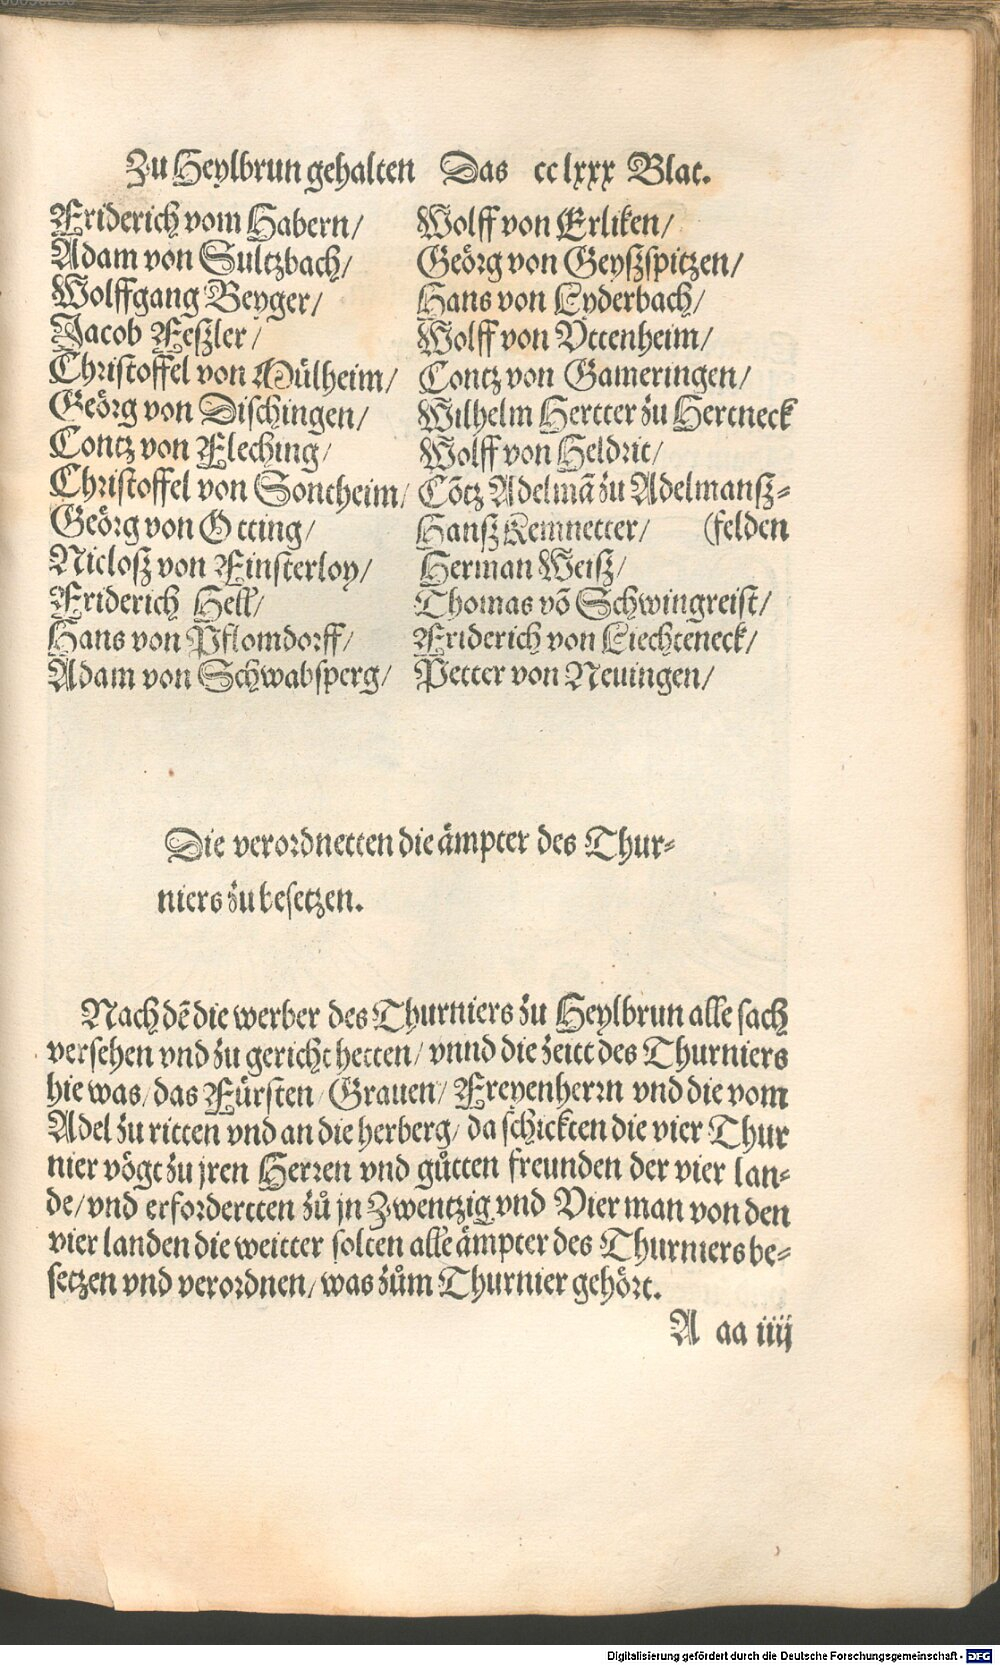 Zu Heylbrun gehalten Das cclxxx Blat.
Friderich vom Habern/
Adam von Sultzbach/
Wolffgang Beyger/
Jacob Feßler/
Christoffel von Mülheim/
Geörg von Dischingen/
Contz von Fleching/
Christoffel von Sontheim/
Geörg von Otting/
Nicloß von Finsterloy/
Friderich Hell/
Hans von Pflomdorff/
Adam von Schwabsperg/
Wolff von Erliken/
Geörg von Geyßspitzen/
Hans von Lyderbach/
Wolff von Vttenheim/
Contz von Gameringen/
Wilhelm Hertter zu Hertneck
Wolff von Heldrit/
Cõtz Adelmã zu Adelmanß-
Hanß Kemnetter/ (felden
Herman Weiß/
Thomas võ Schwingreist/
Friderich von Liechteneck/
Petter von Neuingen/
Die verordnetten die ämpter des Thur-
niers zu besetzen.
Nach dẽ die werber des Thurniers zu Heylbrun alle sach
versehen vnd zu gericht hetten/ vnnd die zeitt des Thurniers
hie was/ das Fürsten/ Grauen/ Freyenherrn vnd die vom
Adel zu ritten vnd an die herberg/ da schickten die vier Thur
nier vögt zu jren Herren vnd gůtten freunden der vier lan-
de/ vnd erfordertten zů jn Zwentzig vnd Vier man von den
vier landen die weitter solten alle ämpter des Thurniers be-
setzen vnd verordnen/ was zům Thurnier gehört.
A aa iiij
Digitalisierung gefördert durch die Deutsche Forschungsgemeinschaft - DFG